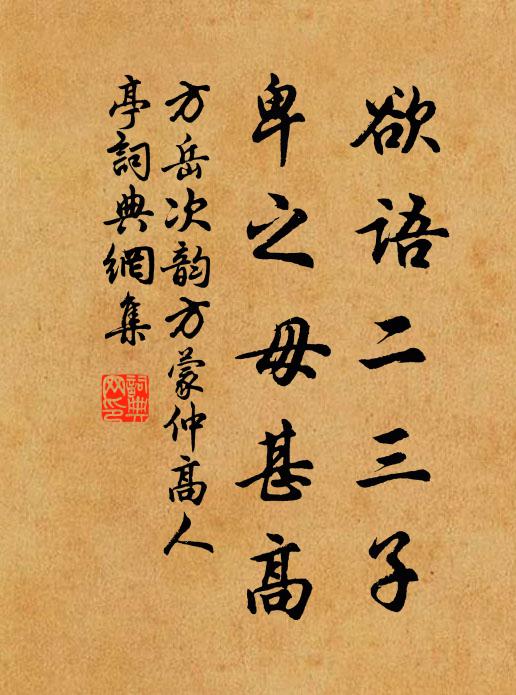 欲語二三子
卑之毋甚高
方岳次韵方蒙仲高人
亭詞典網集
詞典
网印